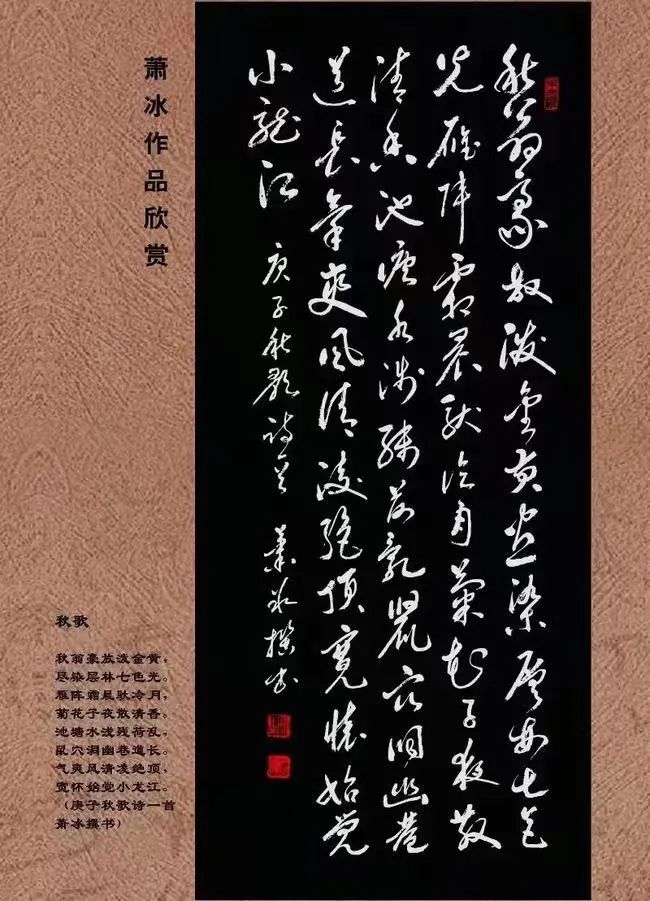 萧冰作品欣赏
秋翁豪放泼金黄尽染层林七色
光雁阵霜晨驮冷月菊花子夜散
清香池塘水浅残荷乱鼠穴洞幽巷
道长气爽风清凌绝顶宽怀始觉
小龙江 庚子秋歌诗一首 萧冰撰书
秋歌
秋翁豪放泼金黄，
尽染层林七色光。
雁阵霜晨驮冷月，
菊花子夜散清香。
池塘水浅残荷乱，
鼠穴洞幽巷道长。
气爽风清凌绝顶，
宽怀始觉小龙江。
（庚子秋歌诗一首
萧冰撰书）